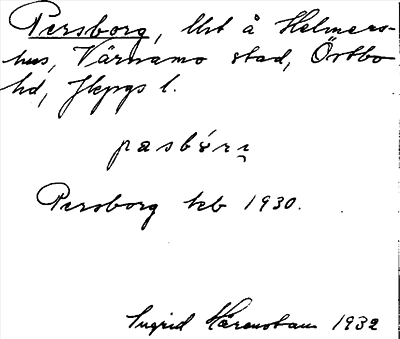 Persborg, lht å Helmers-
hus, Värnamo stad, Östbo
hd, Jkpgs l.
pasbórı
Persborg keb 1930.
Ingrid Härenstam 1932